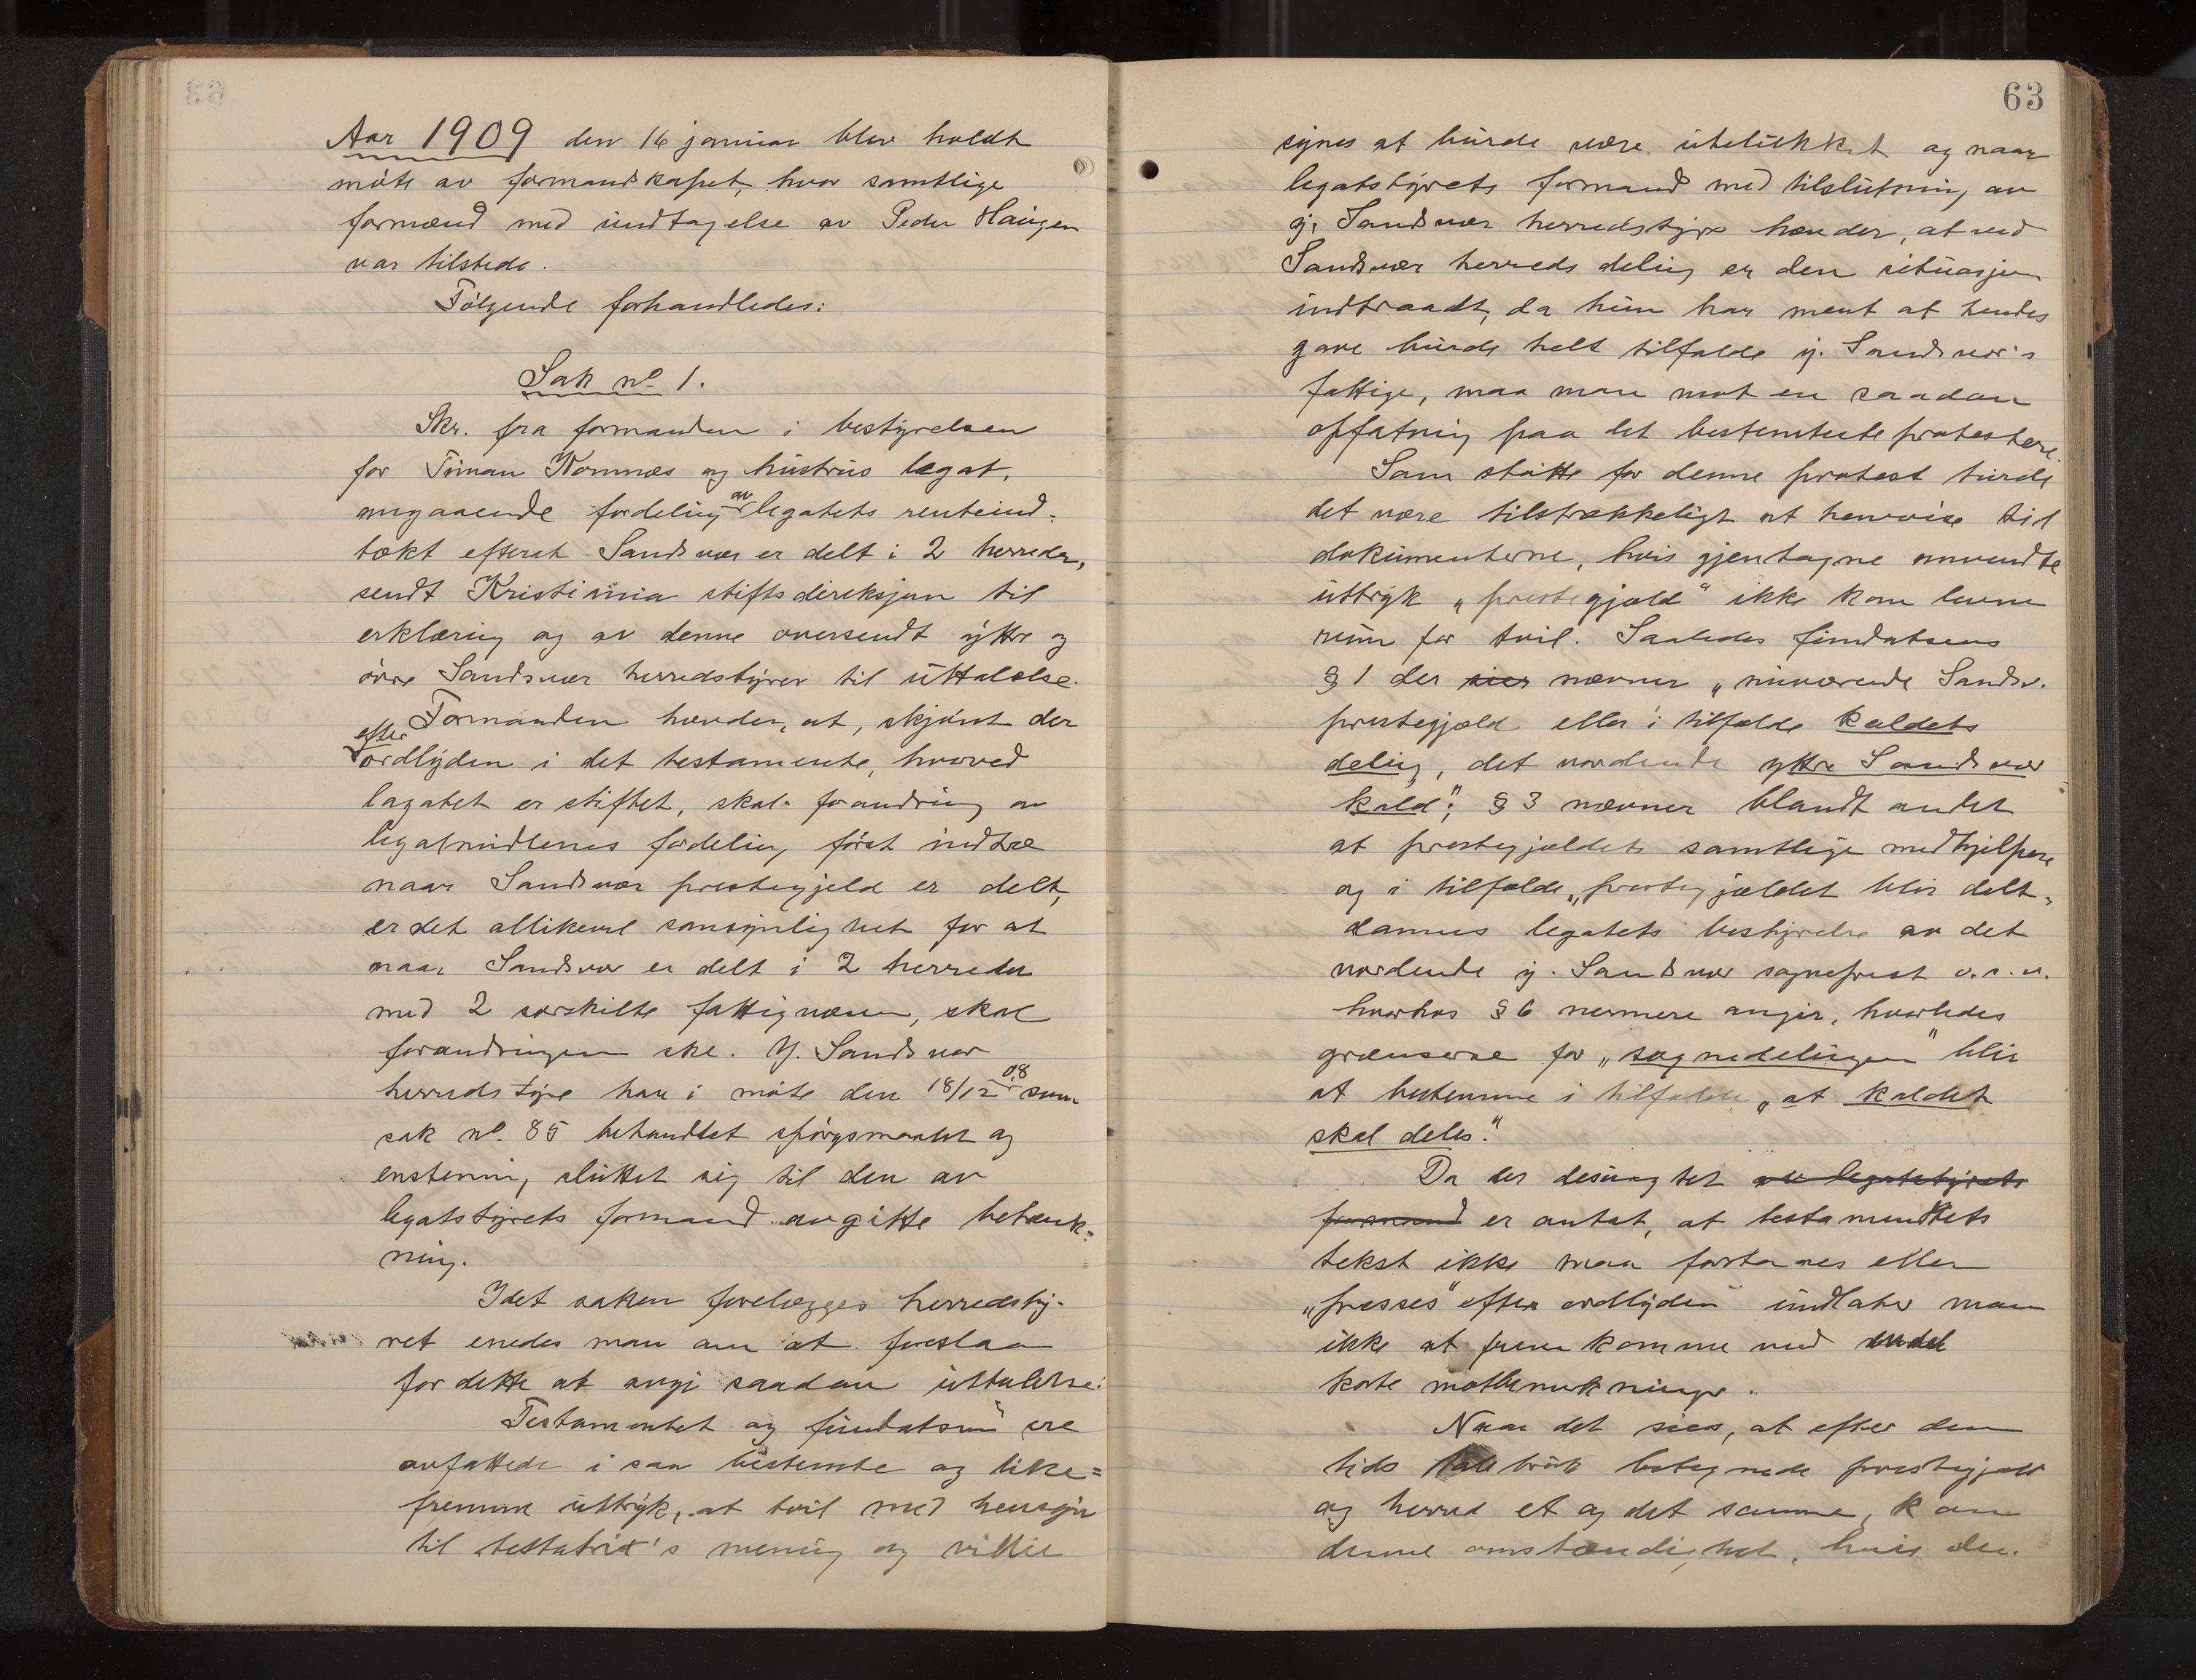 Aar 1909 den 16 januar blev holdt
møte av formandskapet, hvor samtlige
formænd med undtagelse av Peder Haugen
var tilstede.
Følgende forhandledes:
Sak no 1.
Skr. fra formanden i bestyrelsen
for Timan Kornnæs og hustrus legat,
angaaende fordeling av legatets renteind-
tækt efterat Sandsvær er delt i 2 herreder,
sendt Kristiania stiftsdireksjon til
erklæring og av denne oversendt ytre og
øvre Sandsvær herredstyrer til uttalelse.
Formanden hævder, at, skjønt der
efter ordlyden i det testamente, hvorved
legatet er stiftet, skal forandring av
legatmidlenes fordeling først indtræ
naar Sandsvær prestegjeld er delt,
er det allikevel sansynlighet for at
naar Sandsvær er delt i 2 herreder
med 2 særskilte fattigvæsen, skal
forandringen ske. Y. Sandsvær
herredstyre har i møte den 18/12 08 som
sak no. 85 behandlet spørgsmaalet og
enstemmig sluttet sig til den av
legatstyrets formand avgitte betænk-
ning.
Idet saken forelægges herredsty-
ret enedes man om at foreslaa
for dette at avgi saadan uttalelse:
Testamentet og fundatsen ere
avfattede i saa bestemte og like=
fremme uttryk, at tvil med hensyn
til testatrix's mening og villie
63
synes at burde være utelukket og naar
legatstyrets formand med tilslutning av
y. Sandsvær herredstyre hævder, at ved
Sandsvær herreds deling er den situasjon
indtraadt, da hun har ment at hendes
gave burde helt tilfalde y. Sandsvær's
fattige, maa man mot en saadan
opfatning paa det bestemteste protestere.
Som støtte for denne protest turde
det være tilstrækkeligt at henvise til
dokumenterne, hvis gjentagne anvendte
uttryk „prestegjæld" ikke kan levne
rum for tvil. Saaledes fundatsens
§ 1 der sier nævner „nuværende Sandsv.
prestegjæld eller i tilfælde kaldets
deling, det vordende yttre Sandsvær
kald"; § 3 nævner blandt andet
at prestegjældets samtlige medhjelpere
og i tilfælde „prestegjældet blir delt"
dannes legatets bestyrelse av det
vordende y. Sandsvær sogneprest o.s.v.
hvorhos § 6 nermere angir, hvorledes
grænserne for „sognedelingen" blir
at bestemme i tilfælde „at kaldet
skal deles."
Da der desuagtet av legatstyrets
formand er antat, at testamentets
tekst ikke maa fortaaes eller
„presses" efter ordlyden undlater man
ikke at frem komme med endel
korte motbemerkninger.
Naar det sies, at efter den
tids talebruk betegnede prestegjæld
og herred et og det samme, kan
denne omstændighet, hvis den